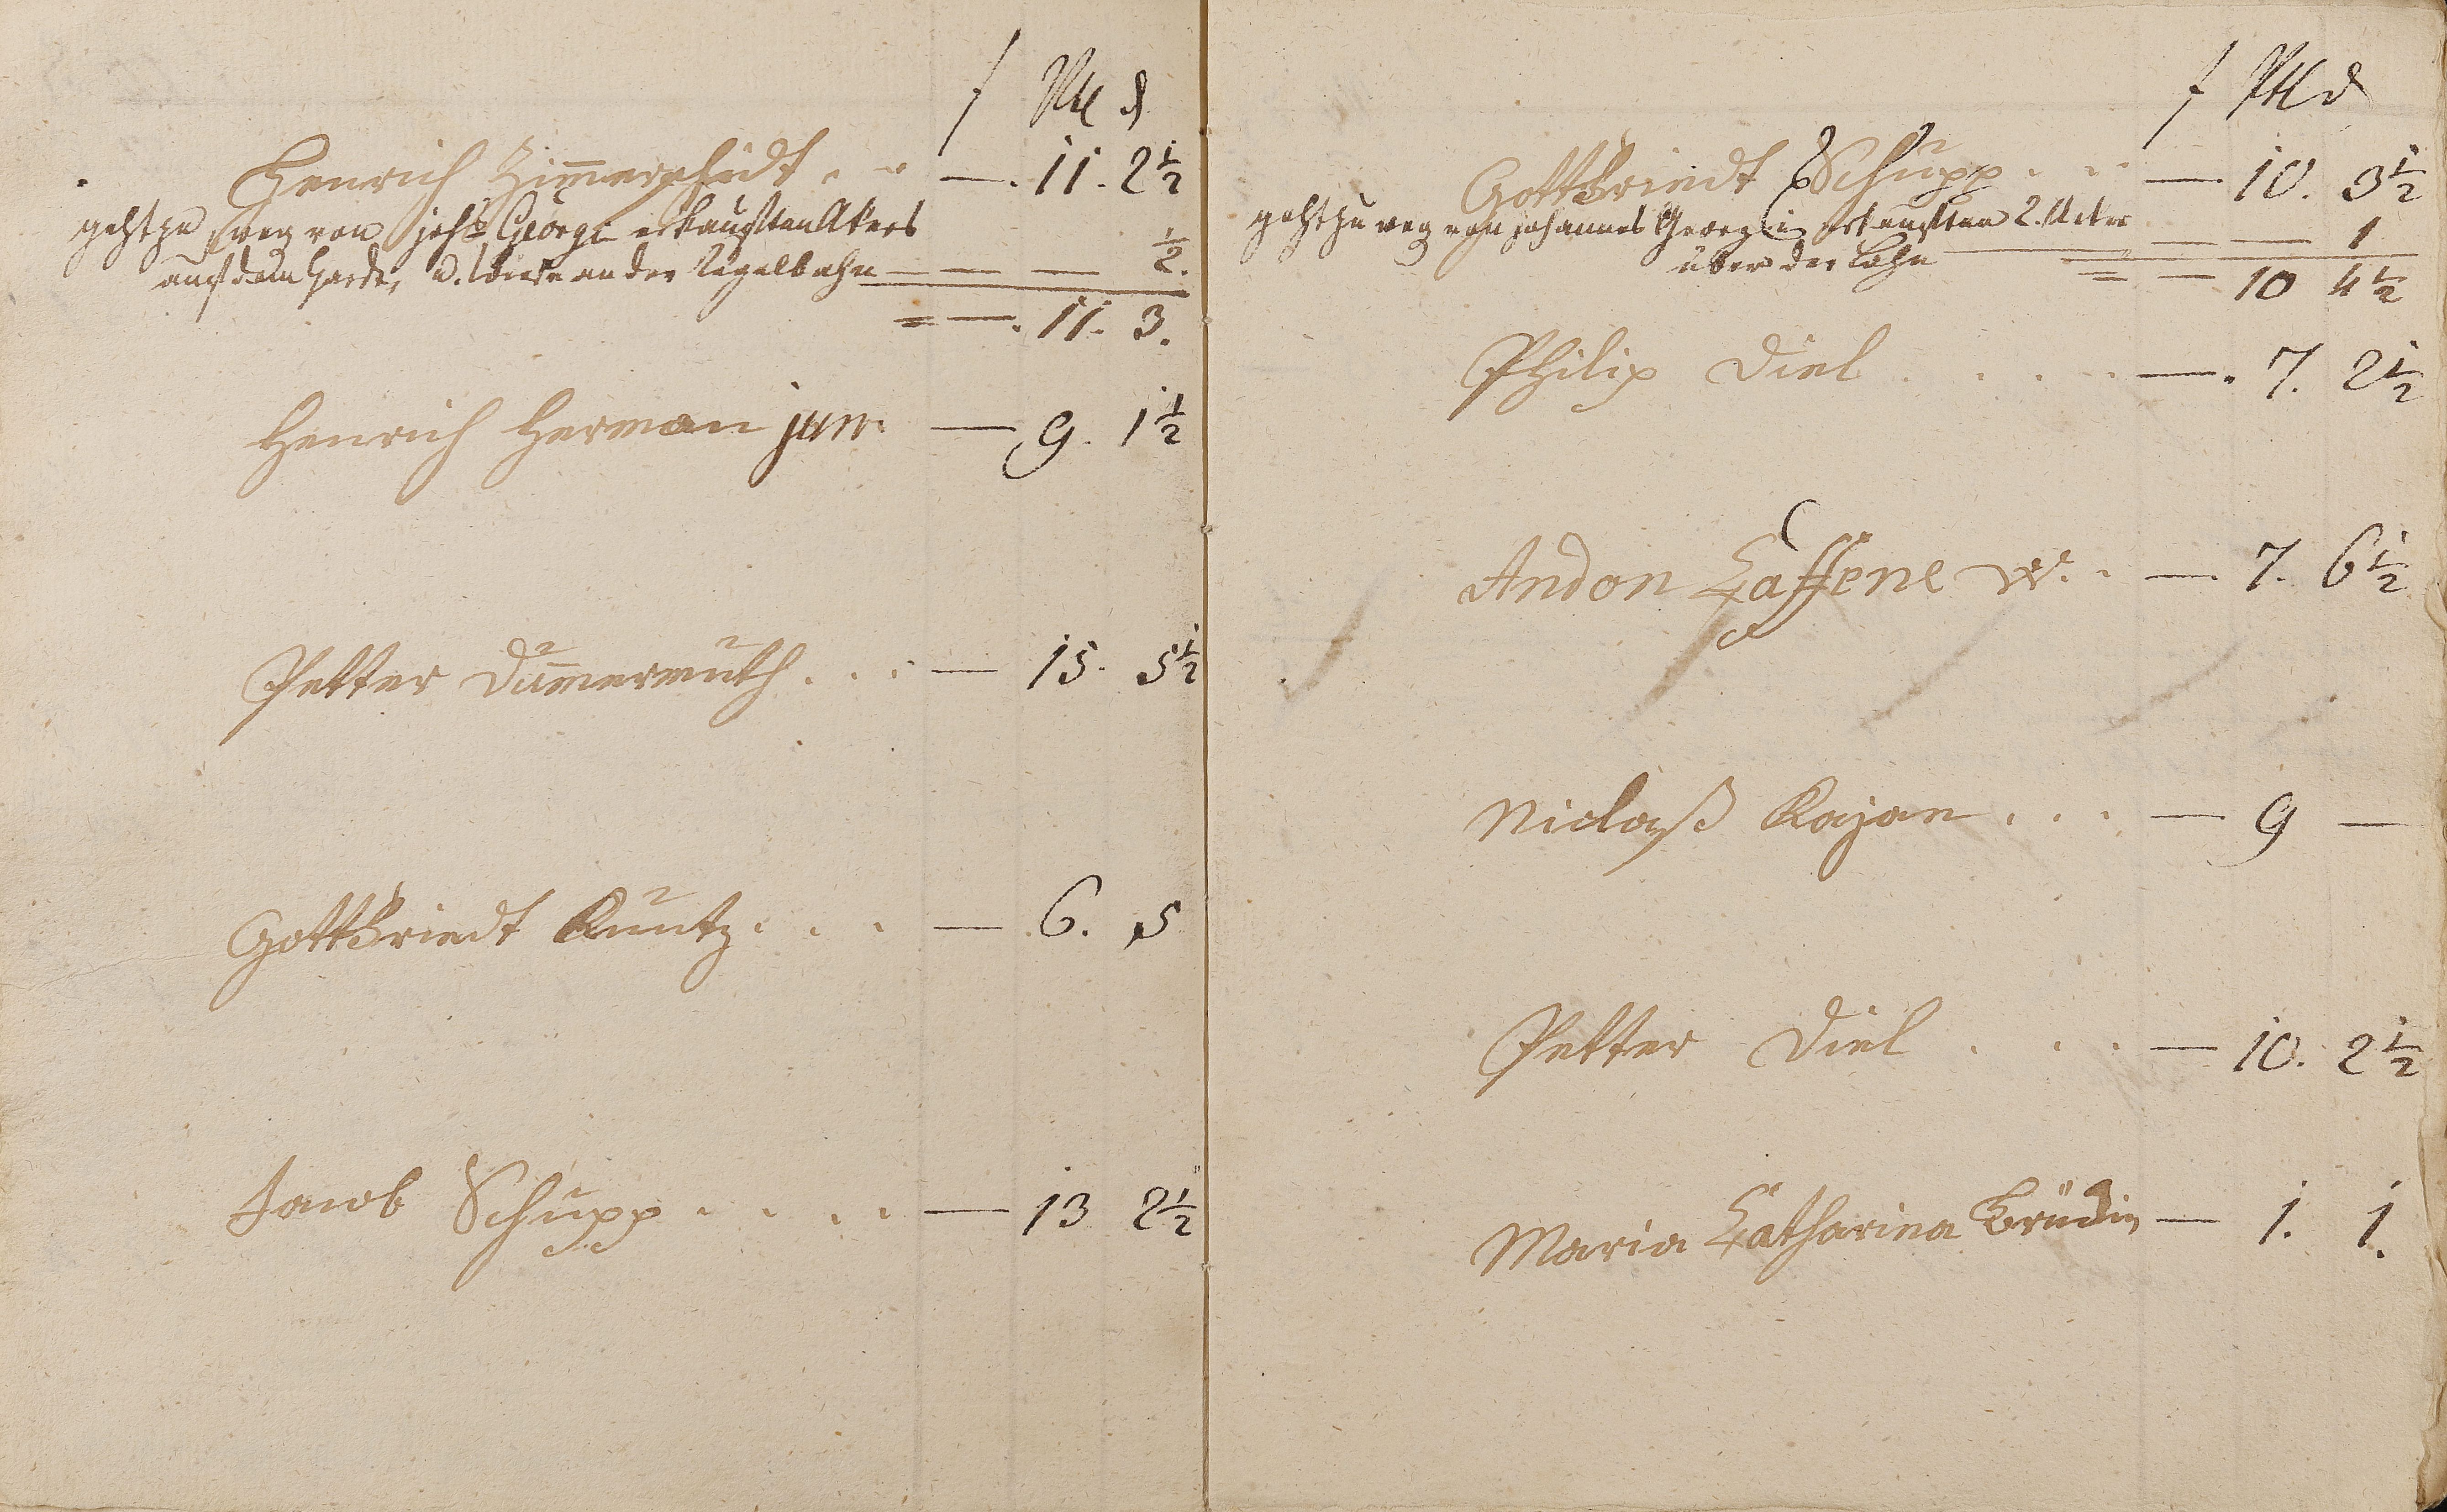 f Alb d
Henrich Zim̅erschidt . . — . 11 . 2 1/2
geht zu weg von Johs Georgi erkaufften Akers — — — 1/2.
auf dem Hardt, u. Wiese an der Kegelbahn
= — . 11 . 3.
Henrich Herman junr. — 9 . 1 1/2
Petter Dum̅ermuth . . . — 15 . 5 1/2
Gottfriedt Kuntz . . . — 6 . 5
Jacob Schupp . . . . — 13 2 1/2
f Alb d
Gottfriedt Schupp . . . — 10 . 3 1/2
geht zu weg von Johannes Georgi erkaufften 2. Acker — — 1
über der Lohn
= — 10 4 1/2
Philip Diel . . . . . — . 7 . 2 1/2
Andon Caffene W. . — 7 . 6 1/2
Niclaß Kajan . . . — 9 —
Petter Diel . . . — 10 . 2 1/2
Maria Catharina Brüdin — 1 . 1.